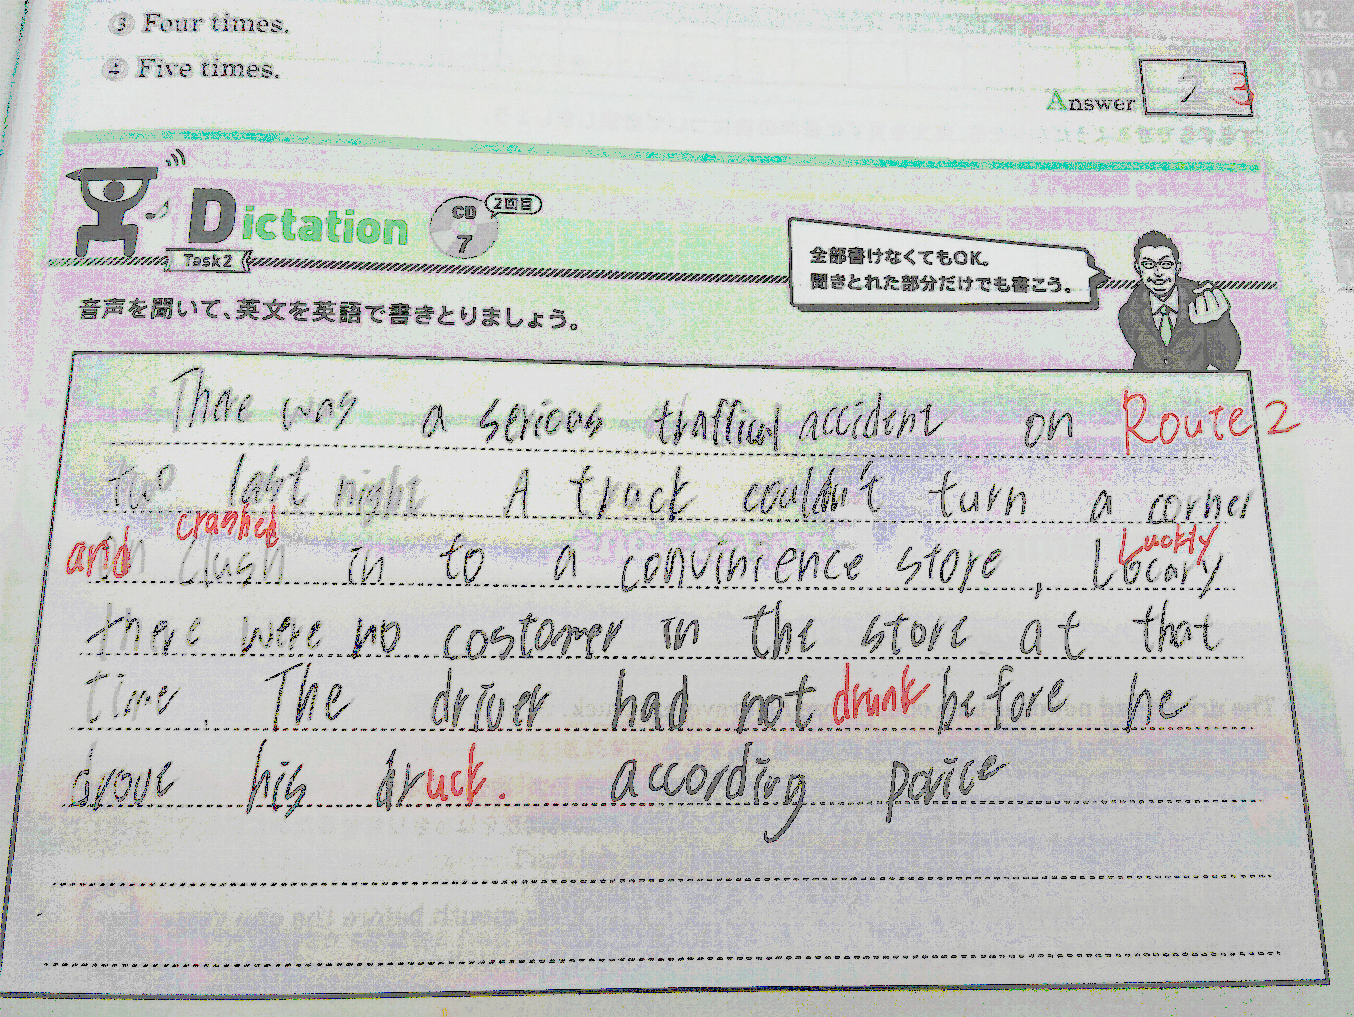 ③ Four times.
④ Five times.
Answer 3
Dictation CD 7 2回目
Task2
全部書けなくてもOK。
聞きとれた部分だけでも書こう。
音声を聞いて、英文を英語で書きとりましょう。
There was a serious traffical accident on Route 2
two last night. A track couldn't turn a corner
and crashed
clush in to a convinience store, Locary Luckly
there were no costomer in the store at that
time. The driver had not drunk before he
drove his druck. according porice
12
13
14